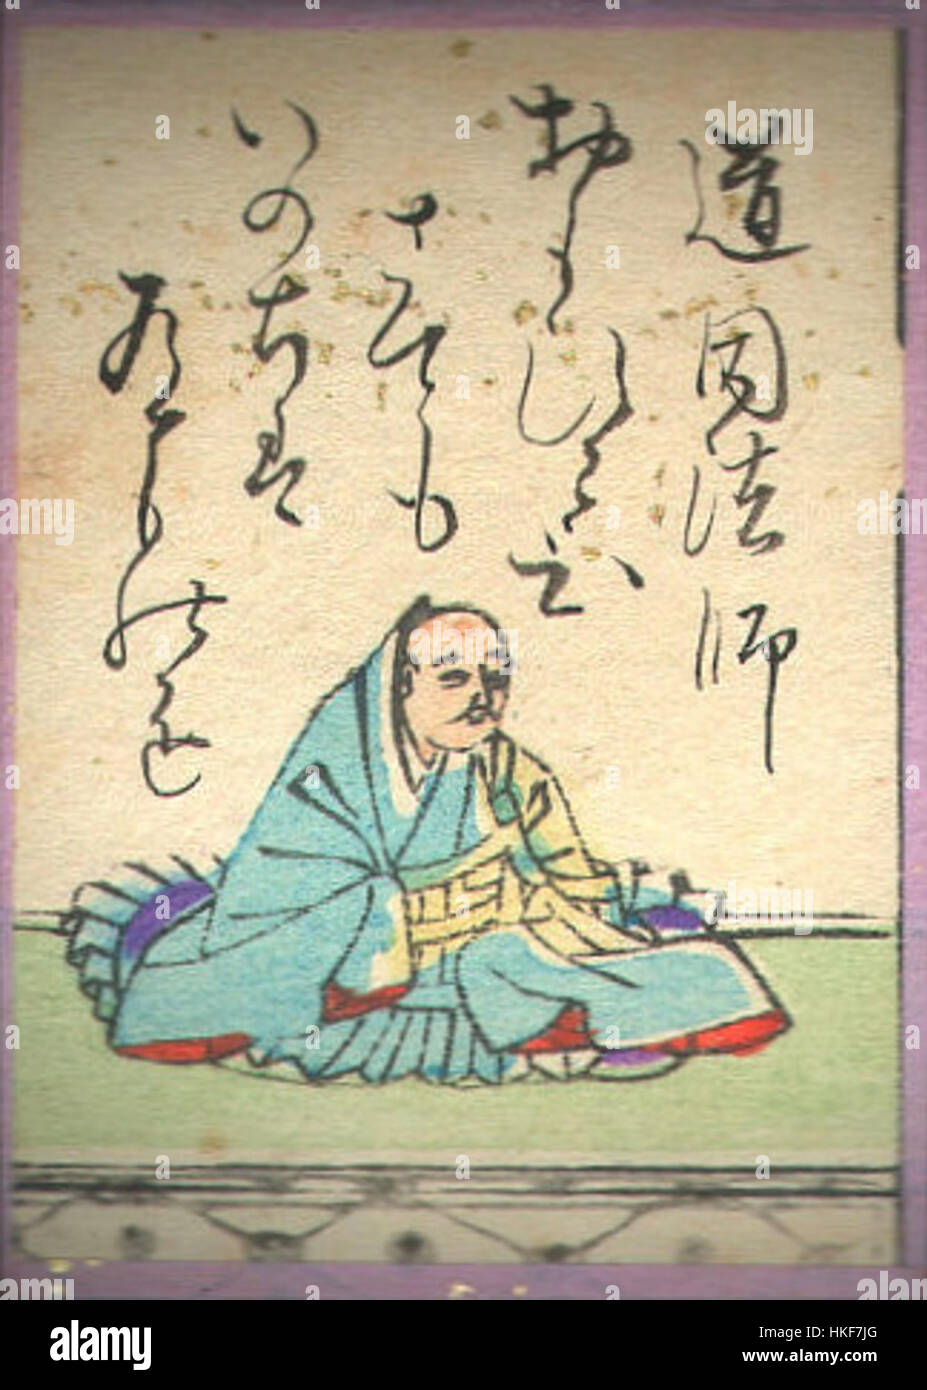 道因法師
おもひわひ
さても
いのちは
あるものを
alamy stock photo
HKF7JG
www.alamy.com